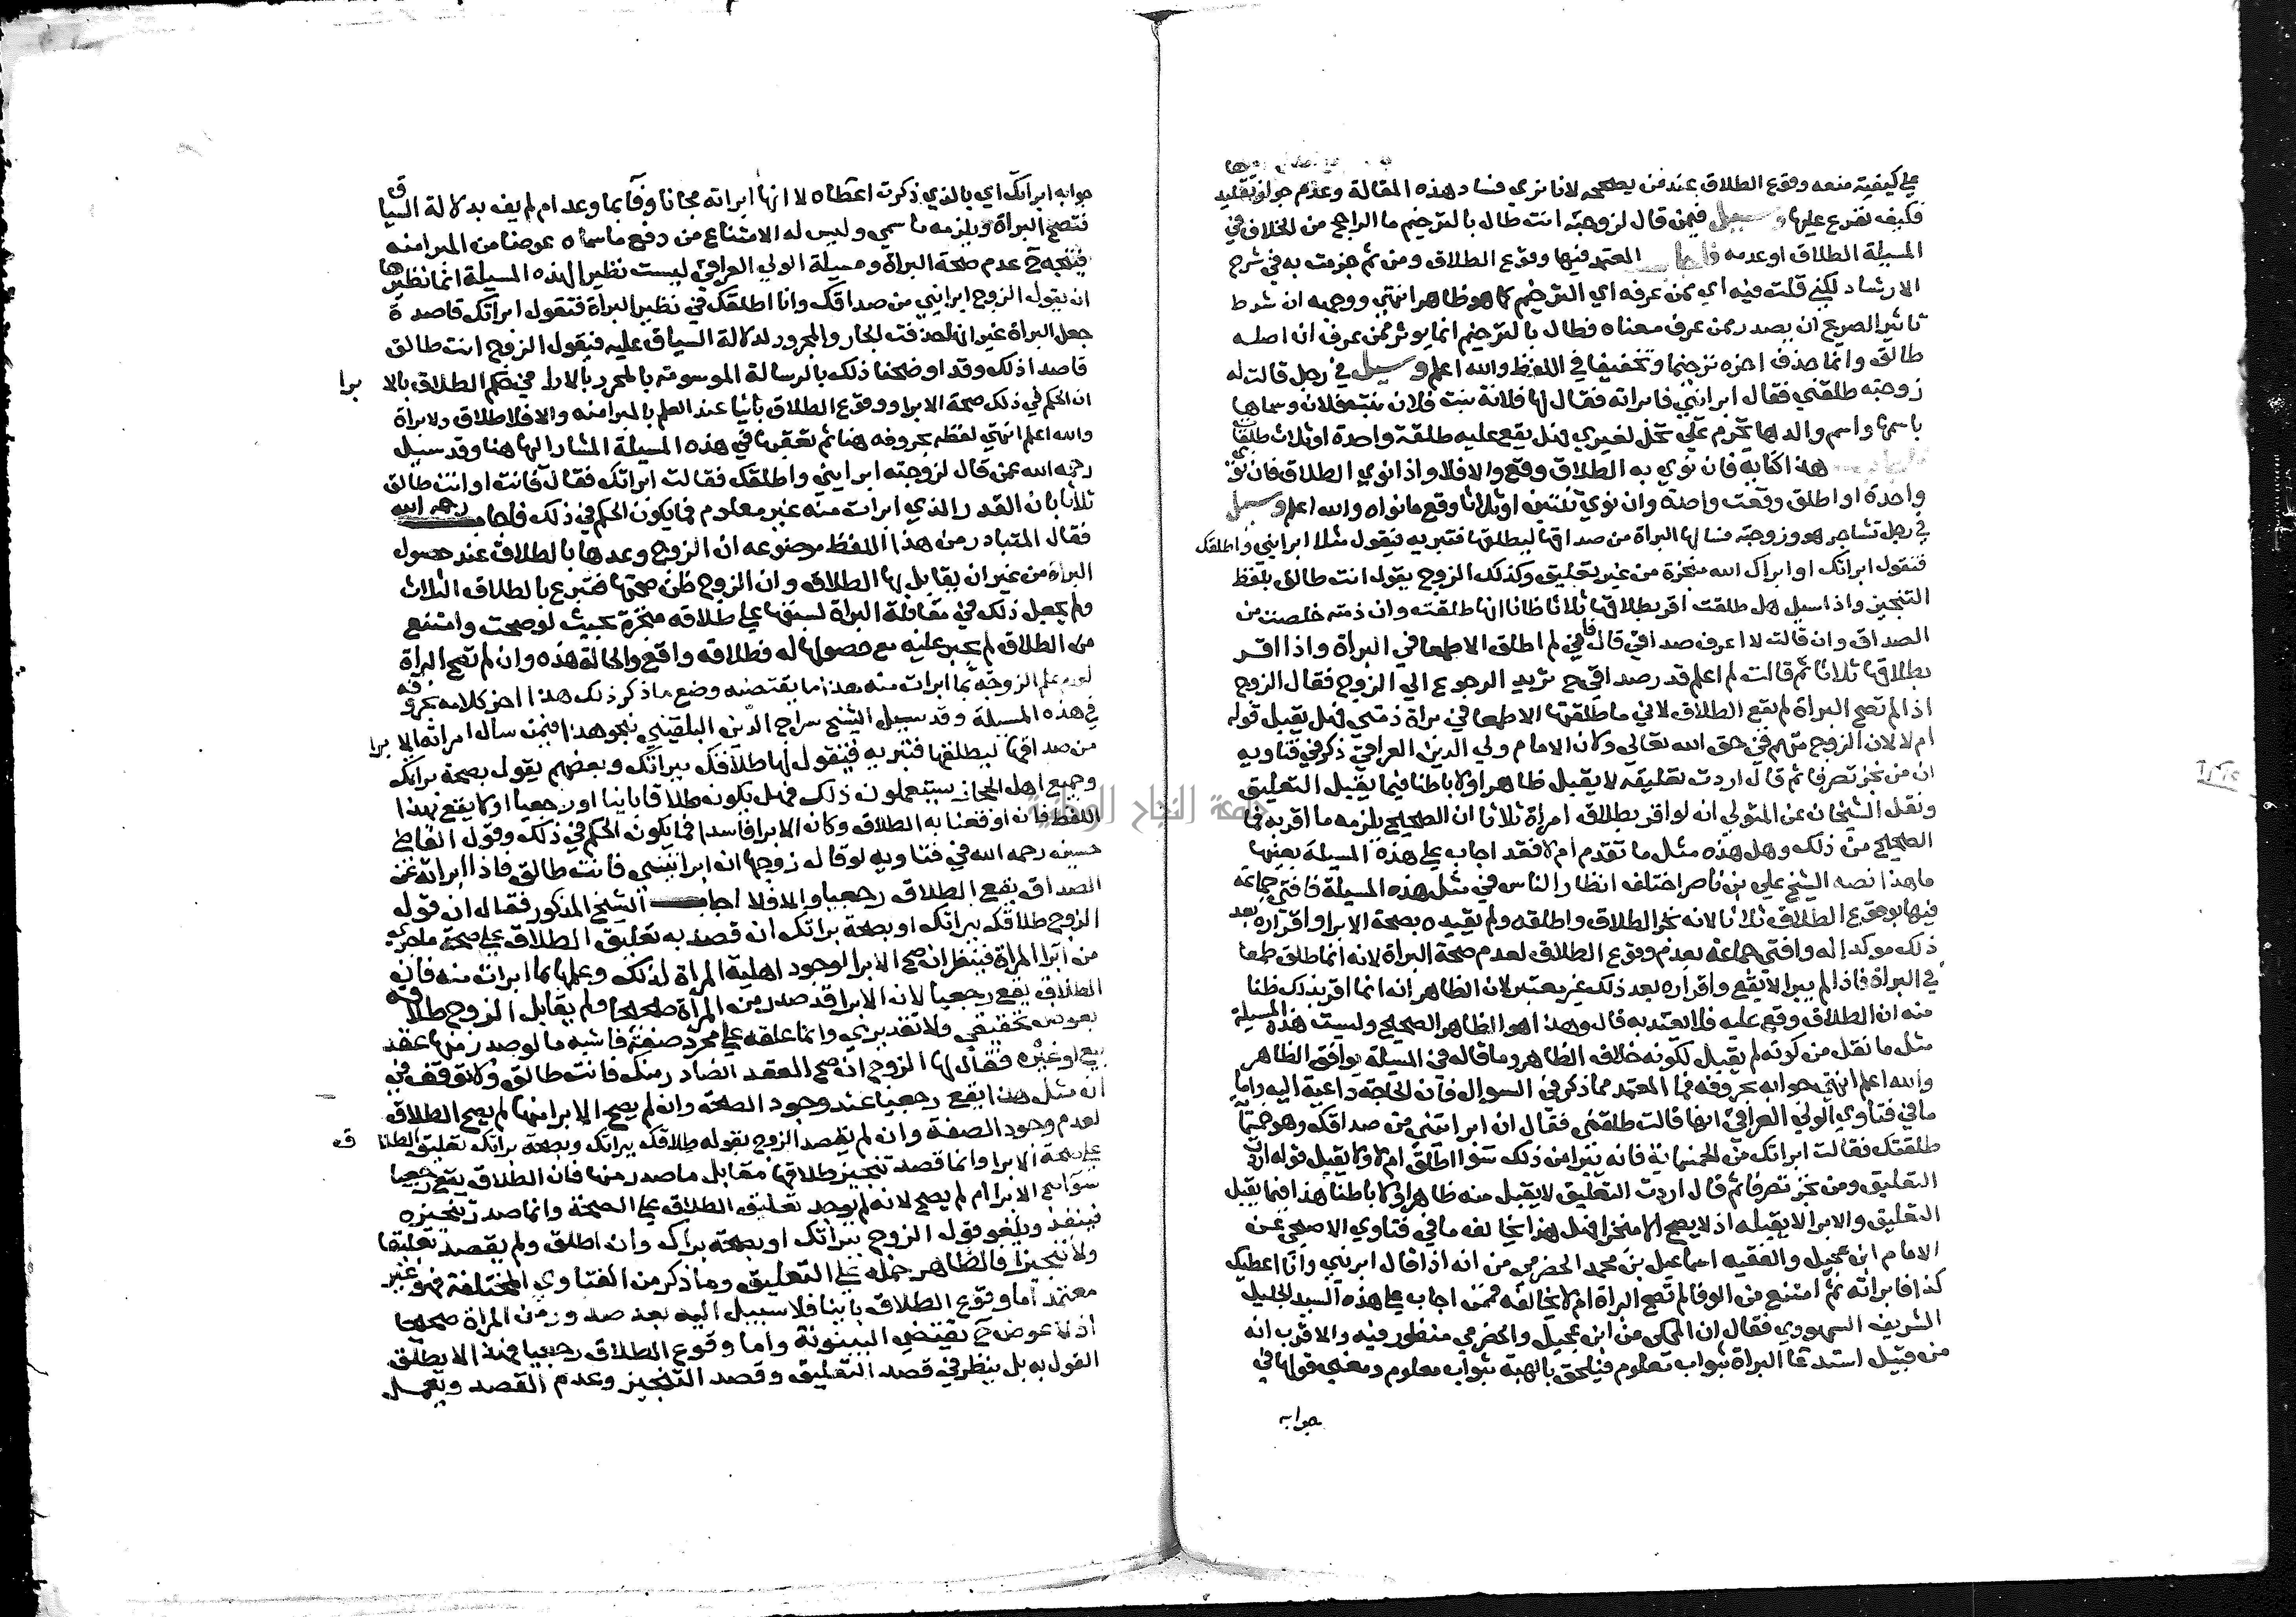 على كيفية منعه وقوع الطلاق عند من يصححه لانا نرى فساد هذه المقالة وعدم جواز تقليد
فكيف نفرع عليها وسيل فيمن قال لزوجته انت طال بالترخيم ما الراجح من الخلاف في
المسيلة الطلاق او عدمه فاجاب المعتمد فيها وقوع الطلاق ومن ثم جزمت به في شرح
الارشاد لكني قلت فيه اي ممن عرفه اي الترخيم كما هو ظاهر انتهى ووجهه ان شرط
تاثير الصريح ان يصدر ممن عرف معناه فطال بالترخيم انما يوثر ممن عرف ان اصله
طالق وانما حذف اخره ترخيما وتخفيفا في اللفظ والله اعلم وسيل في رجل قالت له
زوجته طلقني فقال ابرائيني فابراته فقال لها فلانة بنت فلان بنت فلان وسماها
باسمها واسم والدها تحرم علي تحل لغيري فهل يقع عليه طلقة واحدة او ثلاث طلقات
هذا كناية فان نوى به الطلاق وقع والا فلا واذا نوى الطلاق فان نوى
واحدة او اطلق وقعت واحدة وان نوى ثنتين او ثلاثا وقع ما نواه والله اعلم وسيل
في رجل تشاجر هو وزوجته فسالها البراة من صداقها ليطلقها فتبريه فيقول مثلا ابرايني واطلقك
فتقول ابراتك او ابراك الله منجزة من غير تعليق وكذلك الزوج يقول انت طالق بلفظ
التنجيز واذا سيل هل طلقت اقر بطلاقها ثلاثا ظانا انها طلقته وان ذمته خلصت من
الصداق وان قالت لا اعرف صداقي قال فاني لم اطلق الا طمعا في البراة واذا اقر
بطلاقها ثلاثا ثم قالت لم اعلم قدر صداقي ح تريد الرجوع الي الزوج فقال الزوج
اذا لم تصح البراة لم يقع الطلاق لاني ما طلقتها الا طمعا في براة ذمتي فهل يقبل قوله
ام لا لان الزوج متهم في حق الله تعالي وكان الامام ولي الدين العراقي ذكر في فتاويه
ان من نجز تصرفا ثم قال اردت تعليقه لا يقبل ظاهرا ولا باطنا فيما يقبل التعليق
ونقل الشيخان عن المتولي انه لو اقر بطلاق امراة ثلاثا ان الصحيح يلزمه ما اقر به فما
الصحيح من ذلك وهل هذه مثل ما تقدم ام لا فقد اجاب على هذه المسيلة بعينها
ما هذا نصه الشيخ علي بن ناصر اختلف انظار الناس في مثل هذه المسيلة فافتى جماعة
فيها بوقوع الطلاق ثلاثا لانه نجز الطلاق واطلقه ولم يقيده بصحة الابرا واقراره بعد
ذلك موكدا له وافتى جماعة بعدم وقوع الطلاق لعدم صحة البراة لانه انما طلق طمعا
في البراة فاذا لم يبرا لا يقع واقراره بعد ذلك غير معتبر لان الظاهر انه انما اقر بذلك ظنا
منه ان الطلاق وقع عليه فلا يعتد به قال وهذا هو الظاهر الصحيح وليست هذه المسيلة
مثل ما نقل من كونه لم يقبل لكونه خلاف الظاهر وما قاله في المسيلة يوافق الظاهر
والله اعلم انتهى جوابه بحروفه فما المعتمد مما ذكر في السوال فان الحاجة داعية اليه واما
ما في فتاوي الولي العراقي انها قالت طلقني فقال ان ابراتيني من صداقك وهو خمسماية
طلقتك فقالت ابراتك من الخمسماية فانه يبرا من ذلك سوا اطلق ام لا ولا يقبل قوله اردت
التعليق ومن نجز تصرفا ثم قال اردت التعليق لا يقبل منه ظاهرا ولا باطنا هذا فيما يقبل
التعليق والابرا لا يقبله اذ لا يصح الا منجزا فهل هذا يخالف ما في فتاوي الاصبحي عن
الامام ابن عجيل والفقيه اسماعيل بن محمد الحضرمي من انه اذا قال ابرئني وانا اعطيك
كذا فابراته ثم امتنع من الوفا لم تصح البراة ام لا يخالفه فممن اجاب على هذه السيد الجليل
الشريف السمهودي فقال ان المحكي عن ابن عجيل والحضرمي منظور فيه والاقرب انه
من قبيل استدعا البراة بثواب معلوم فيلحق بالهبة بثواب معلوم ومعنى قولها في
جوابه
جوابه ابراتك اي بالذي ذكرت اعطاه لا انها ابراته مجانا وفا بما وعد ام لم يف بدلالة السياق
فتصح البراة ويلزمه ما سمي وليس له الامتناع من دفع ما سماه عوضا من المبرا منه
فيتجه ح عدم صحة البراة ومسيلة الولي العراقي ليست نظير هذه المسيلة انما نظيرها
ان يقول الزوج ابرايني من صداقك وانا اطلقك في نظير البراة فتقول ابراتك قاصدة
جعل البراة غير انها حذفت الجار والمجرور لدلالة السياق عليه فيقول الزوج انت طالق
قاصدا ذلك وقد اوضحنا ذلك بالرسالة الموسومة بالمحرر بالارا في حكم الطلاق بالابرا
ان الحكم في ذلك صحة الابرا ووقوع الطلاق باينا عند العلم بالمبرا منه والا فلا طلاق ولا براة
والله اعلم انتهى لفظه بحروفه هنا ثم تعقبها في هذه المسيلة المشار اليها هنا وقد سيل
رحمه الله عمن قال لزوجته ابرايني واطلقك فقالت ابراتك فقال فانت او انت طالق
ثلاثا بان القدر الذي ابرات منه غير معلوم فما يكون الحكم في ذلك فاجاب رحمه الله
فقال المتبادر من هذا اللفظ موضوعه ان الزوج وعدها بالطلاق عند حصول
البراة من غير ان يقابل بها الطلاق وان الزوج ظن صحتها فتبرع بالطلاق الثلاث
ولم يجعل ذلك في مقابلة البراة لسبقها على طلاقه منجزة بحيث لو صحت وامتنع
من الطلاق لم يجبر عليه مع حصولها له فطلاقه واقع والحالة هذه وان لم تصح البراة
لعدم علم الزوجة بما ابرات منه هذا ما يقتضيه وضع ما ذكر ذلك هذا اخر كلامه بحروفه
في هذه المسيلة وقد سيل الشيخ سراج الدين البلقيني بنحو هذا فيمن سال امراته الابرا
من صداقها ليطلقها فتبريه فيقول لها طلاقك ببراتك وبعضهم يقول بصحة براتك
وجميع اهل الحجاز يستعملون ذلك فهل يكون طلاقا باينا او رجعيا او لا يقع بهذا
اللفظ فان اوقعنا به الطلاق وكان الابرا فاسدا فما يكون الحكم في ذلك وقول القاضي
حسين رحمه الله في فتاويه لو قال زوجها ان ابراتيني فانت طالق فاذا ابراته عن
الصداق يقع الطلاق رجعيا والا فلا اجاب الشيخ المذكور فقال ان قول
الزوج طلاقك ببراتك او بصحة براتك ان قصد به تعليق الطلاق على صحة ما جرى
من ابرا المراة فينظر ان صح الابرا لوجود اهلية المراة لذلك وعلمها بما ابرات منه فان
الطلاق يقع رجعيا لان الابرا قد صدر من المراة صحيحا ولم يقابل الزوج طلاقه
بعوض تحقيقي ولا تقديري وانما علقه على مجرد صفة فاشبه ما لو صدر منها عقد
بيع او غيره فقال لها الزوج ان صح العقد الصادر منك فانت طالق ولا توقف في
ان مثل هذا يقع رجعيا عند وجود الصحة وان لم يصح الابرا منها لم يصح الطلاق
لعدم وجود الصفة وان لم يقصد الزوج بقوله طلاقك ببراتك وبصحة براتك تعليق الطلاق
على صحة الابرا وانما قصد تنجيز طلاقها مقابل ما صدر منها فان الطلاق يقع رجعيا
سوا صح الابرا ام لم يصح لانه لم يوجد تعليق الطلاق على الصحة وانما صدر تنجيزه
فينفذ ويلغو قول الزوج ببراتك او بصحة براتك وان اطلق ولم يقصد تعليقا
ولا تنجيزا فالظاهر حمله على التعليق وما ذكر من الفتاوي المختلفة فهو غير
معتمد اما وقوع الطلاق باينا فلا سبيل اليه بعد صدور من المراة صحيحا
اذ لا عوض ح يقتضي البينونة واما وقوع الطلاق رجعيا فهذا لا يطلق
القول به بل ينظر في قصد التعليق وقصد التنجيز وعدم القصد ويعمل
جامعة النجاح الوطنية